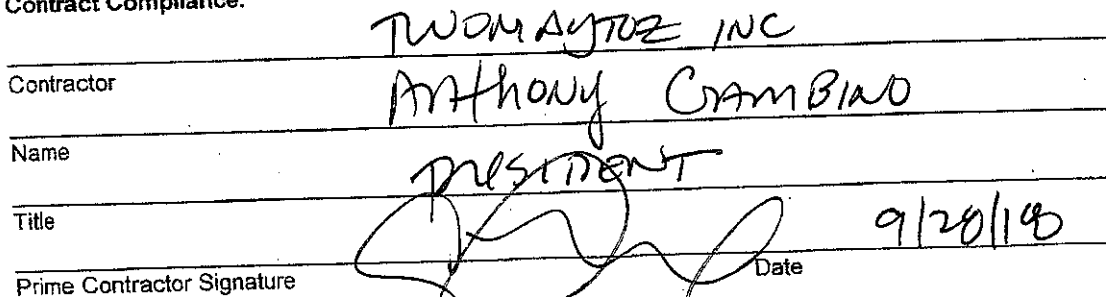 Contract Compliance:
TWOMAYTOZ INC
Contractor
Anthony GAMBINO
Name
PRESIDENT
Title
9/28/18
Prime Contractor Signature
Date